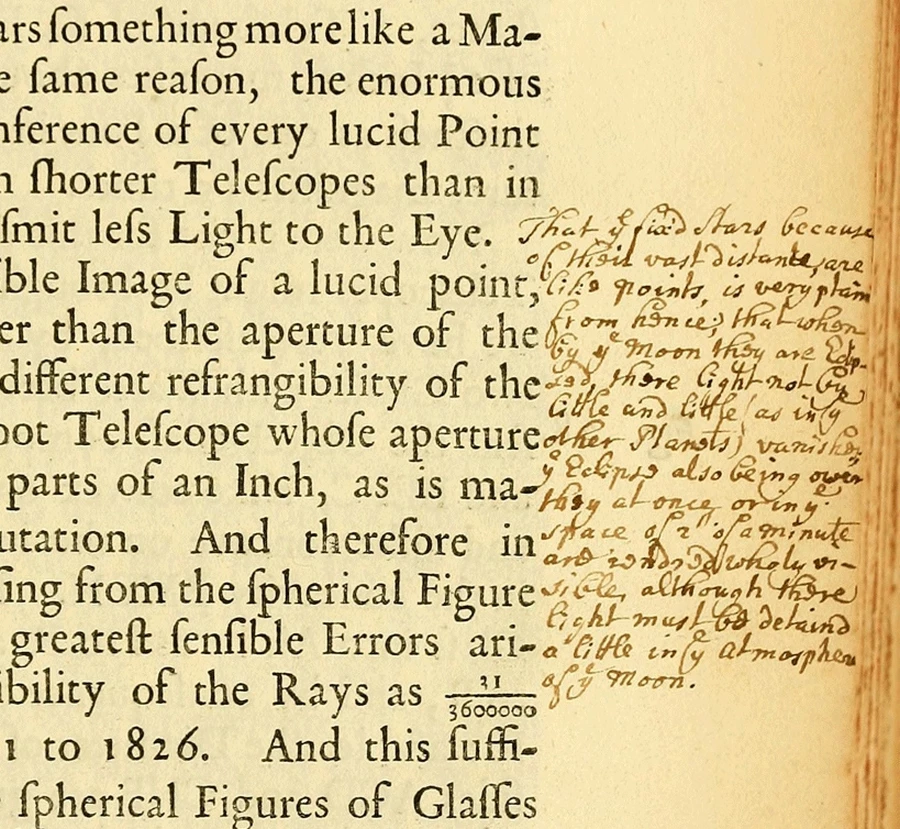 ars ſomething more like a Ma-
e ſame reaſon, the enormous
nference of every lucid Point
n ſhorter Teleſcopes than in
ſmit leſs Light to the Eye.
ible Image of a lucid point,
er than the aperture of the
different refrangibility of the
oot Teleſcope whoſe aperture
parts of an Inch, as is ma-
utation. And therefore in
ſing from the ſpherical Figure
greateſt ſenſible Errors ari-
ibility of the Rays as 31/3600000
1 to 1826. And this ſuffi-
ſpherical Figures of Glaſſes
That yͤ fixed Stars because
of their vast distante, are
like points, is very plain
from hence; that when
by yͤ Moon they are Eclip-
sed, there light not by
little and little (as in yͤ
other Planets) vanishes,
yͤ Eclipse also being over
they at once or in yͤ
space of 2" of a minute
are rendred wholy vi-
sible, although there
light must be detaind
a little in yͤ Atmosphere
of yͤ Moon.